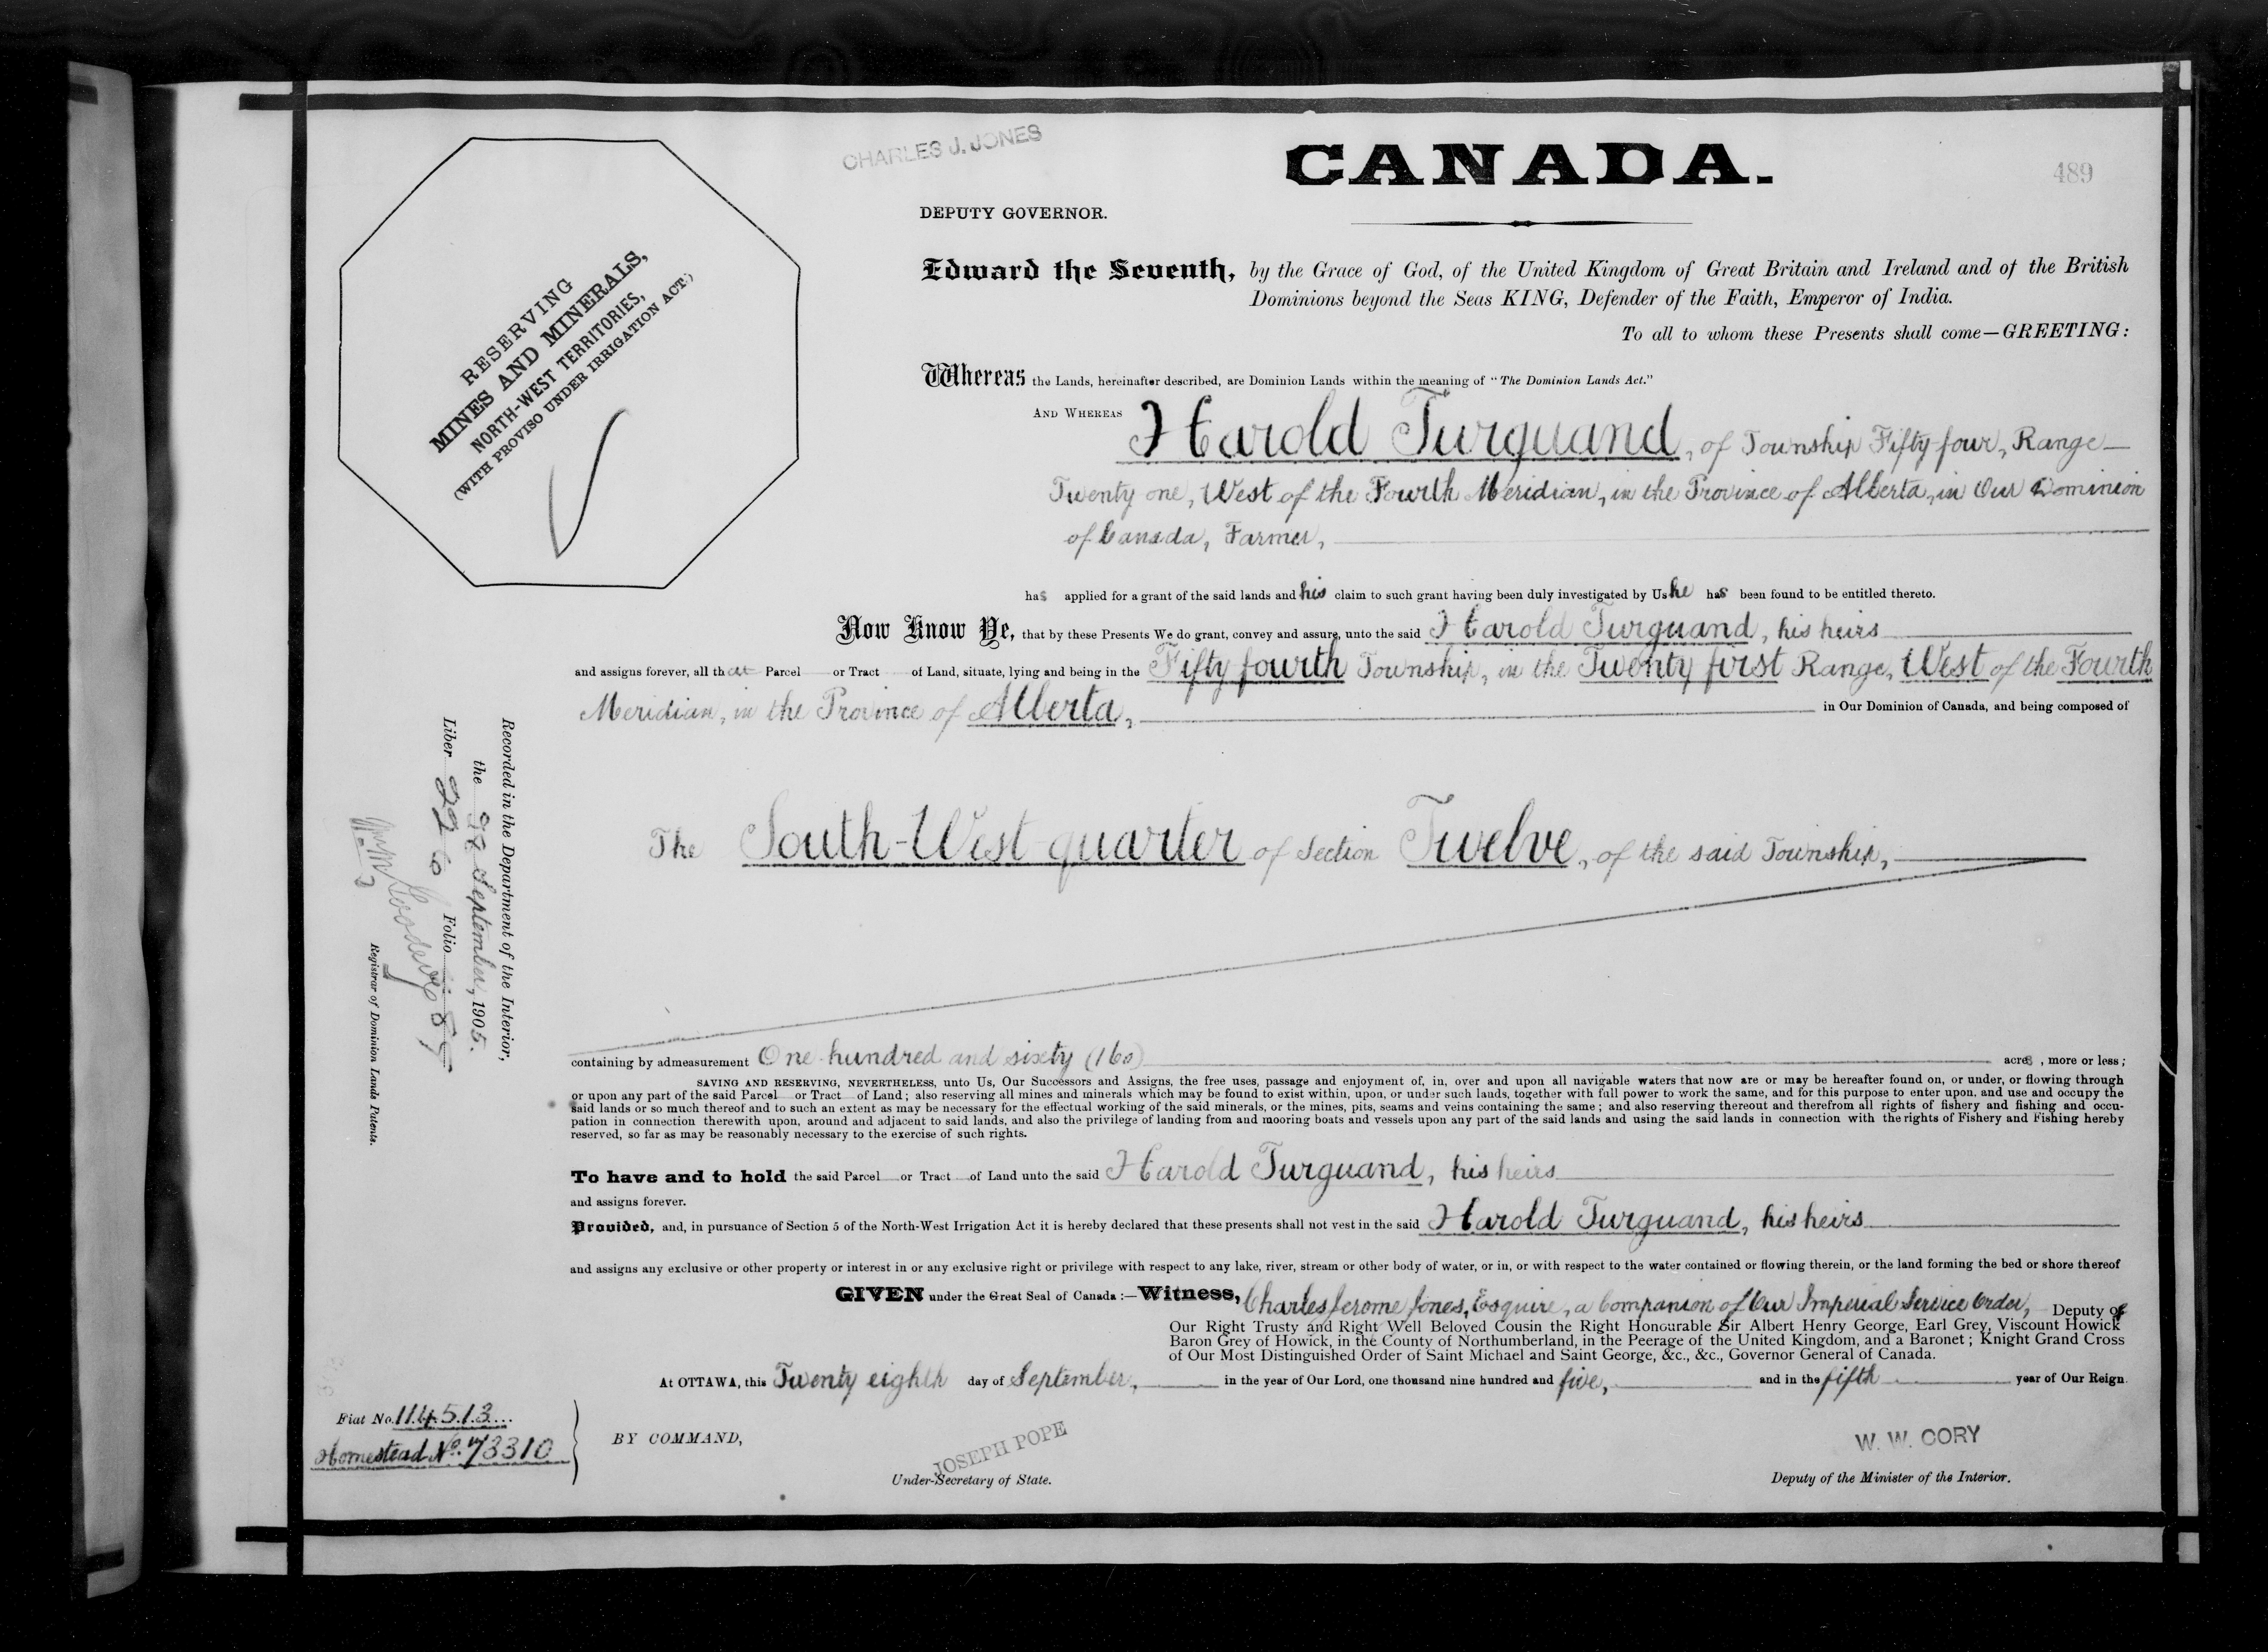 CHARLES J. JONES
CANADA.
489
DEPUTY GOVERNOR.
RESERVING
MINES AND MINERALS,
NORTH-WEST TERRITORIES,
(WITH PROVISO UNDER IRRIGATION ACT.)
Edward the Seventh, by the Grace of God, of the United Kingdom of Great Britain and Ireland and of the British
Dominions beyond the Seas KING, Defender of the Faith, Emperor of India.
To all to whom these Presents shall come—GREETING:
Whereas the Lands, hereinafter described, are Dominion Lands within the meaning of "The Dominion Lands Act."
AND WHEREAS Harold Turquand, of Township Fifty four, Range
Twenty one, West of the Fourth Meridian, in the Province of Alberta, in Our Dominion
of Canada, Farmer,
has applied for a grant of the said lands and his claim to such grant having been duly investigated by Us he has been found to be entitled thereto.
Now Know Ye, that by these Presents We do grant, convey and assure, unto the said Harold Turquand, his heirs
and assigns forever, all that Parcel or Tract of Land, situate, lying and being in the Fifty fourth Township, in the Twenty first Range, West of the Fourth
Meridian, in the Province of Alberta, in Our Dominion of Canada, and being composed of
The South-West quarter of Section Twelve, of the said Township,
Recorded in the Department of the Interior,
the September, 1905.
Liber 226 Folio
Registrar of Dominion Lands Patents.
containing by admeasurement One hundred and sixty (160) acres, more or less;
SAVING AND RESERVING, NEVERTHELESS, unto Us, Our Successors and Assigns, the free uses, passage and enjoyment of, in, over and upon all navigable waters that now are or may be hereafter found on, or under, or flowing through
or upon any part of the said Parcel or Tract of Land; also reserving all mines and minerals which may be found to exist within, upon, or under such lands, together with full power to work the same, and for this purpose to enter upon, and use and occupy the
said lands or so much thereof and to such an extent as may be necessary for the effectual working of the said minerals, or the mines, pits, seams and veins containing the same; and also reserving thereout and therefrom all rights of fishery and fishing and occu-
pation in connection therewith upon, around and adjacent to said lands, and also the privilege of landing from and mooring boats and vessels upon any part of the said lands and using the said lands in connection with the rights of Fishery and Fishing hereby
reserved, so far as may be reasonably necessary to the exercise of such rights.
To have and to hold the said Parcel or Tract of Land unto the said Harold Turquand, his heirs
and assigns forever.
Provided, and, in pursuance of Section 5 of the North-West Irrigation Act it is hereby declared that these presents shall not vest in the said Harold Turquand, his heirs
and assigns any exclusive or other property or interest in or any exclusive right or privilege with respect to any lake, river, stream or other body of water, or in, or with respect to the water contained or flowing therein, or the land forming the bed or shore thereof
GIVEN under the Great Seal of Canada:—Witness, Charles Jerome Jones, Esquire, a Companion of Our Imperial Service Order, Deputy of
Our Right Trusty and Right Well Beloved Cousin the Right Honourable Sir Albert Henry George, Earl Grey, Viscount Howick
Baron Grey of Howick, in the County of Northumberland, in the Peerage of the United Kingdom, and a Baronet; Knight Grand Cross
of Our Most Distinguished Order of Saint Michael and Saint George, &c., &c., Governor General of Canada.
At OTTAWA, this Twenty eighth day of September, in the year of Our Lord, one thousand nine hundred and five, and in the fifth year of Our Reign.
Fiat No. 114513
Homestead No. 73310
BY COMMAND,
JOSEPH POPE
Under-Secretary of State.
W. W. CORY
Deputy of the Minister of the Interior.